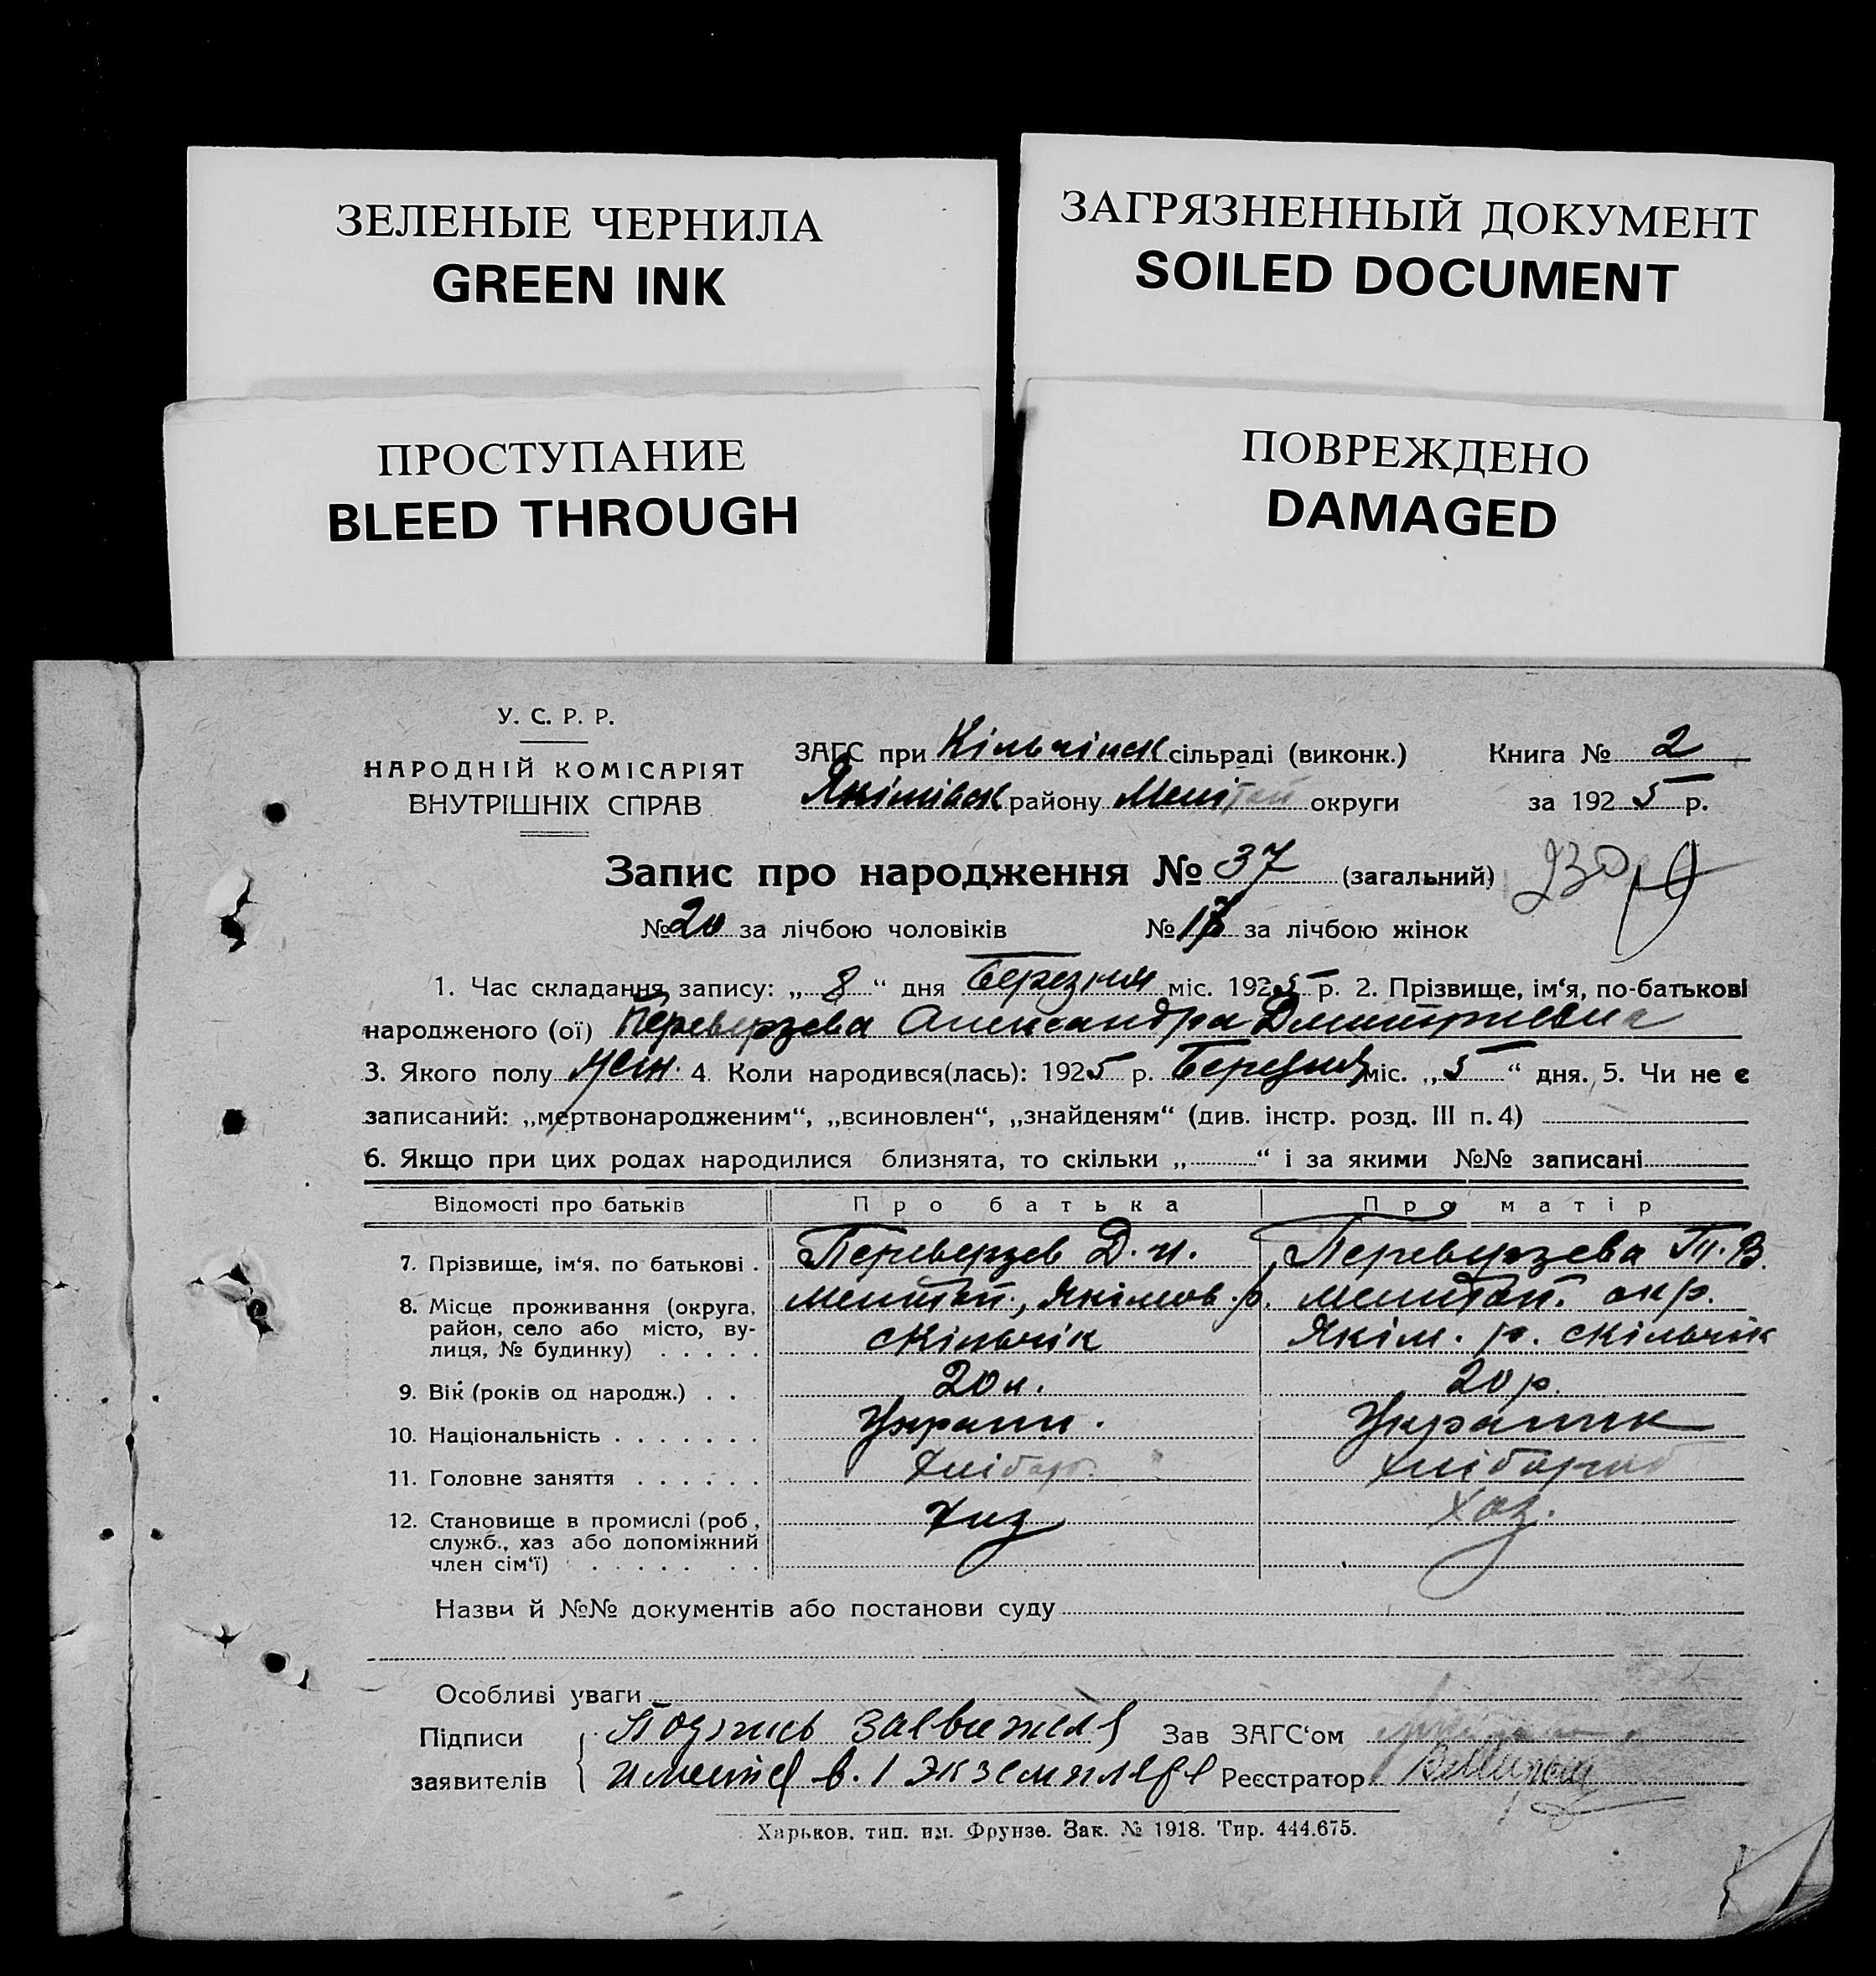 ЗЕЛЕНЫЕ ЧЕРНИЛА
GREEN INK
ЗАГРЯЗНЕННЫЙ ДОКУМЕНТ
SOILED DOCUMENT
ПРОСТУПАНИЕ
BLEED THROUGH
ПОВРЕЖДЕНО
DAMAGED
У. С. Р. Р.
НАРОДНІЙ КОМІСАРІЯТ
ВНУТРІШНІХ СПРАВ
ЗАГС при Кільчінск сільраді (виконк.)
Якімівск району Меліт округи
Книга № 2
за 1925 р.
Запис про народження № 37 (загальний)
№ 20 за лічбою чоловіків № 17 за лічбою жінок
1. Час складання запису: „8“ дня Березня міс. 1925 р. 2. Прізвище, ім‘я, по-батькові
народженого (ої) Переверзева Александра Дмитриевна
3. Якого полу жін. 4. Коли народився(лась): 1925 р. Березня міс. „5“ дня. 5. Чи не є
записаний: „мертвонародженим“, „всиновлен“, „знайденям“ (див. інстр. розд. III п. 4)
6. Якщо при цих родах народилися близнята, то скільки „ “ і за якими №№ записані
Відомості про батьків Про батька Про матір
7. Прізвище, ім‘я, по батькові . Переверзев Д. И. Переверзева Т. В.
8. Місце проживання (округа, Мелитоп., Якімов. р. Мелитоп. окр.
район, село або місто, ву- с Кільчік Якім. р. с Кільчік
лиця, № будинку) . . . . .
9. Вік (років од народж.) . . 20 л. 20 р.
10. Національність . . . . . . . Украин. Украинк
11. Головне заняття . . . . . . Хлібор. Хлібороб
12. Становище в промислі (роб., Хаз Хаз.
служб., хаз або допоміжний
член сім‘ї) . . . . . . .
Назви й №№ документів або постанови суду
Особливі уваги
Підписи Подпись заевителя Зав ЗАГС‘ом
заявителів имеится в. 1 экземпляре Реєстратор
Харьков. тип. им. Фрунзе. Зак. № 1918. Тир. 444.675.